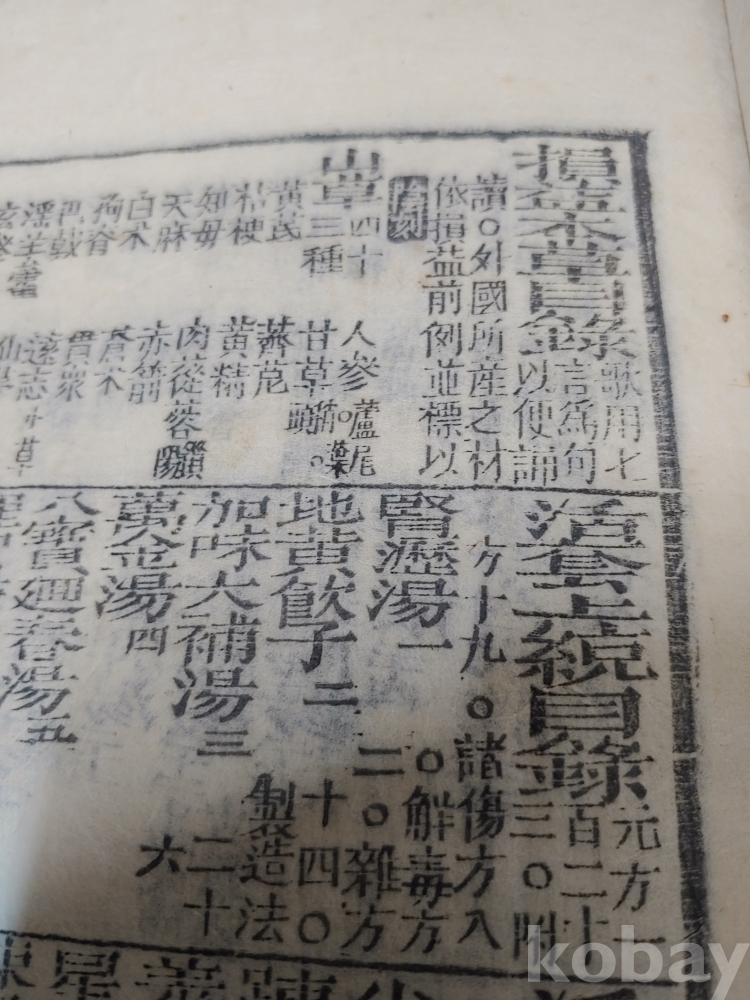 損益本草目錄
歌用七
言為句
以便誦
讀○外國所産之材
依損益前例並標以
陰刻
山草
四十
三種
人參 蘆尾
黃芪 甘草
桔梗 薺苨
知母 黃精
天麻 肉蓯蓉
白朮 赤箭
狗脊 蒼朮
巴戟 貫衆
淫羊藿 遠志 小草
活套上統目錄
元方一
百二十
三○附
方十九○諸傷方八
○解毒方
二○雜方
十四○
製造法
二十
六
腎瀝湯一
地黃飲子二
加味大補湯三
萬金湯四
八寶廻春湯五
kobay